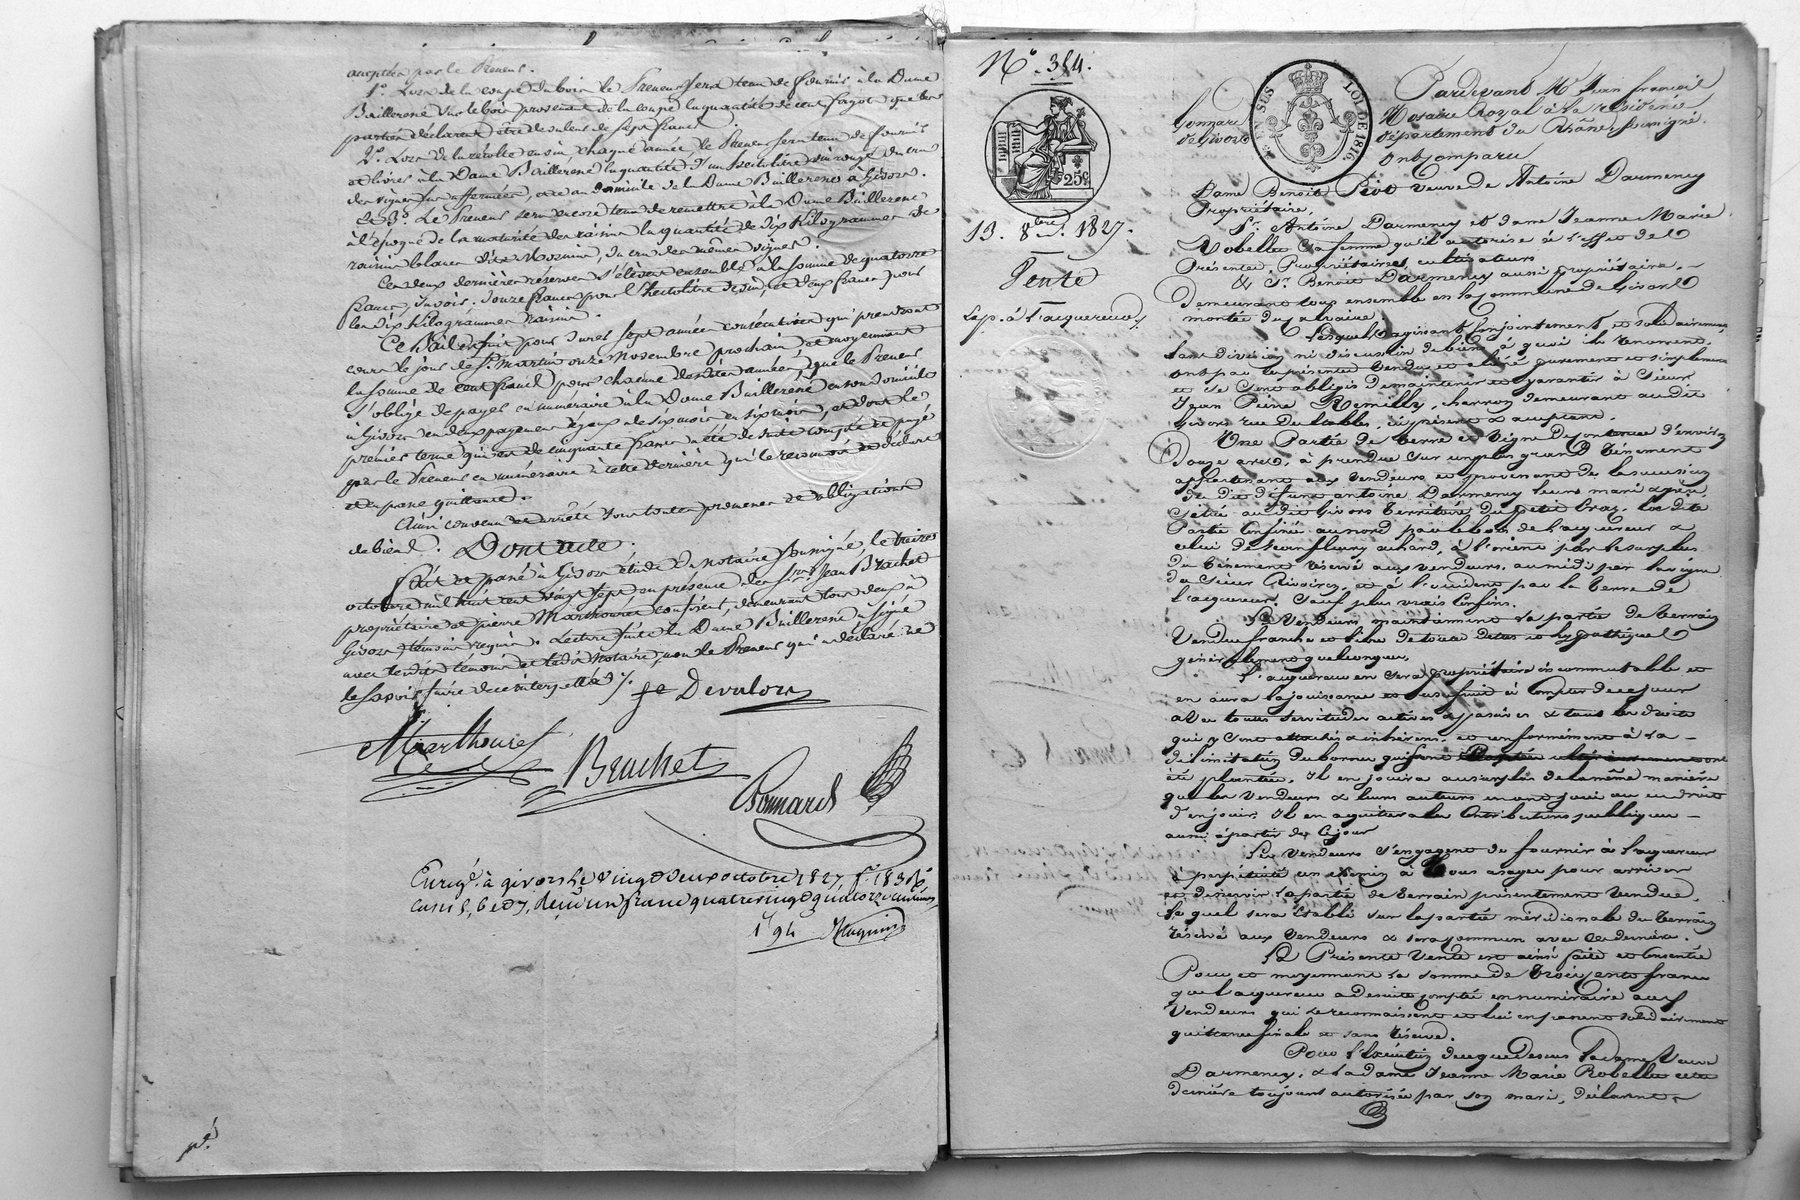 acceptées par le Preneur.
1º. Lors de la coupe du bois le Preneur sera tenu de fournir à la Dame
Baillerene sur le bois provenant de la coupe la quantité de cent fagots que les
parties déclarent être de valeur de sept francs.
2º. Lors de la récolte en vin, chaque année le Preneur sera tenu de fournir
et livrer à la Dame Baillerene la quantité d'un hectolitre vin rouge du cru
des vignes sus affermées, et ce au domicile de la Dame Baillerene à Givors.
Et 3º. Le Preneur sera encore tenu de remettre à la Dame Baillerene
à l'époque de la maturité des raisins la quantité de dix Kilogrammes de
raisins blancs dits Mornains, du cru des mêmes vignes.
Ces deux dernières réserves s'élèvent ensemble à la somme de quatorze
francs, savoir: douze francs pour l'hectolitre de vin, et deux francs pour
les dix Kilogrammes raisins.
Ce bail est fait pour durer sept années consécutives qui prendront
cours le jour de St. Martin onze Novembre prochain et moyennant
la somme de cent francs pour chacune desdites années, que le Preneur
s'oblige de payer en numéraire à la Dame Baillerene en son domicile
à Givors en deux payemens égaux de six mois en six mois, et dont le
premier terme qui est de cinquante francs a été de suite compté et payé
par le Preneur en numéraire à cette dernière qui le reconnait et déclare
et en passe quittance.
Ainsi convenu et arrêté sous toutes promesses et obligations
de biens. Dont acte.
Fait et passé à Givors étude du notaire soussigné, le treize
octobre mil huit cent vingt sept en présence des srs. Jean Brachet
propriétaire et pierre Marthourey confiseur, demeurant tous deux à
Givors, témoins requis. Lecture faite la Dame Baillerene a signé
avec lesdits témoins et ledit Notaire, non le Preneur qui a déclaré ne
le savoir faire de ce interpellé./.
fe Devulors
Marthourey
Brachet
Bonnard
Enregé. à givors le vingt deux octobre 1827, fº. 183 Rº.
cases 5, 6 et 7, Reçu un franc quatre vingt quatorze centimes
1f 94
Nº. 354.
25c
SES
LOI DE 1816
13. 8bre. 1827.
Vente
Exp. à l'acquereur./.
Pardevant Me. Jean françois
Bonnard Notaire Royal à la résidence
de Givors département du Rhône soussigné.
Ont Comparu
Dame Benoite Piot veuve de Antoine Darmency
Propriétaire,
Sr. Antoine Darmency et dame Jeanne Marie
Robelle sa femme qu'il autorise à l'effet des
Présentes, Propriétaires, cultivateurs
& Sr. Benoit Darmency aussi propriétaire.
Demeurant tous ensemble en la Commune de Givors
montée du
Lesquels agissant Conjointement et solidairement
sans division ni discussion de biens à quoi ils renoncent,
ont par ces présentes Vendu et cédé purement et simplement
et se sont obligés de maintenir et garantir à Sieur
Jean Pierre Remilly, charron demeurant audit
givors rue du cables, ici présent & acceptant.
Une Partie de Terre et Vigne de contenue d'environ
Douze ares, à prendre sur un plus grand Ténement
appartenant aux Vendeurs et provenant de la succession
du dit défunt antoine Darmency leurs mari & père,
Située audit Givors Territoire du petit Croz. Ladite
Partie Confinée au nord par le bois de l'acquereur &
celui de Jean fleury achard, à l'orient par le surplus
du Ténement réservé aux vendeurs, au midi par la vigne
du Sieur Rivoire, et à l'occident par la Terre de
l'acquereur. Sauf plus vrais Confins.
Les Vendeurs maintiennent la partie de Terrain
Vendue franche et libre de toutes dettes et hypothèques
généralement quelconques.
L'acquereur en sera propriétaire incommutable et
en aura la jouissance et usufruit à Compter de ce jour
avec toutes servitudes actives & passives & tous les droits
qui y sont attachés & inhérens, et conformément à la
délimitation des bornes qui ont
été plantées. Il en jouira au surplus de la même manière
que les Vendeurs & leurs auteurs en ont joui ou eu droit
d'en jouir. Il en acquittera les Contributions publiques
aussi à partir de Ce jour
Les Vendeurs s'engagent de fournir à l'acquereur
à perpétuité un chemin à Tous usages pour arriver
et desservir la partie de Terrain présentement Vendue.
Le quel sera établi sur la partie méridionale du Terrain
réservé aux Vendeurs & sera commun avec Ces derniers.
La Présente Vente est ainsi faite et Consentie
Pour et moyennant la somme de Trois cents francs
que l'acquereur a de suite compté en numéraire aux
Vendeurs qui le reconnaissent et lui en passent solidairement
quittance finale et sans réserve.
Pour l'Exécution de ce que Dessus Ladame Veuve
Darmency, & la dame Jeanne Marie Robelle cette
dernière toujours autorisée par son mari, déclarent